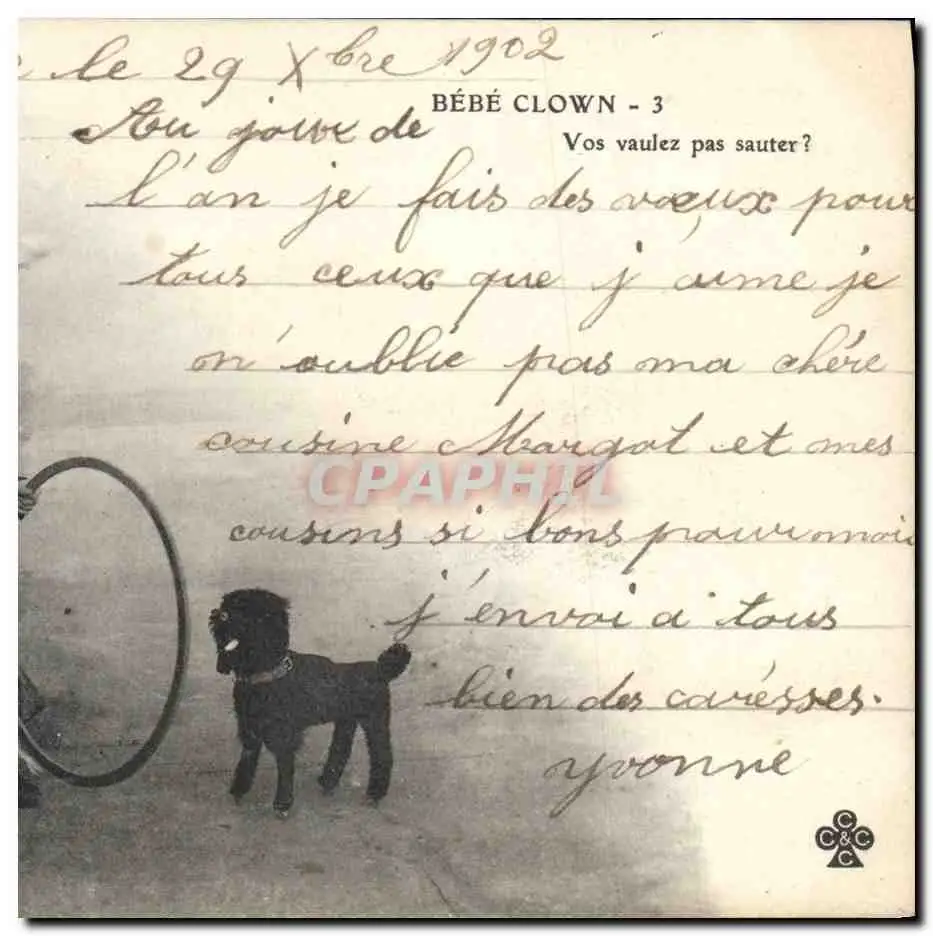 le 29 Xbre 1902
BÉBÉ CLOWN - 3
Vos vaulez pas sauter?
Au jour de
l'an je fais des vœux pour
tous ceux que j'aime je
n'oublie pas ma chére
cousine Margot et mes
CPAPHIL
cousins si bons pour moi
j'envoi a tous
bien des caresses.
Yvonne
C
C&C
C